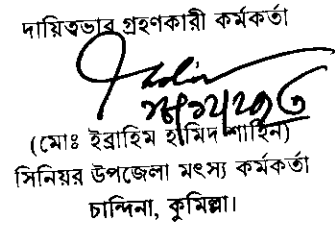 দায়িত্বভাব গ্রহণকারী কর্মকর্তা
(মোঃ ইব্রাহিম হামিদ শাহিন)
সিনিয়র উপজেলা মৎস্য কর্মকর্তা
চান্দিনা, কুমিল্লা।